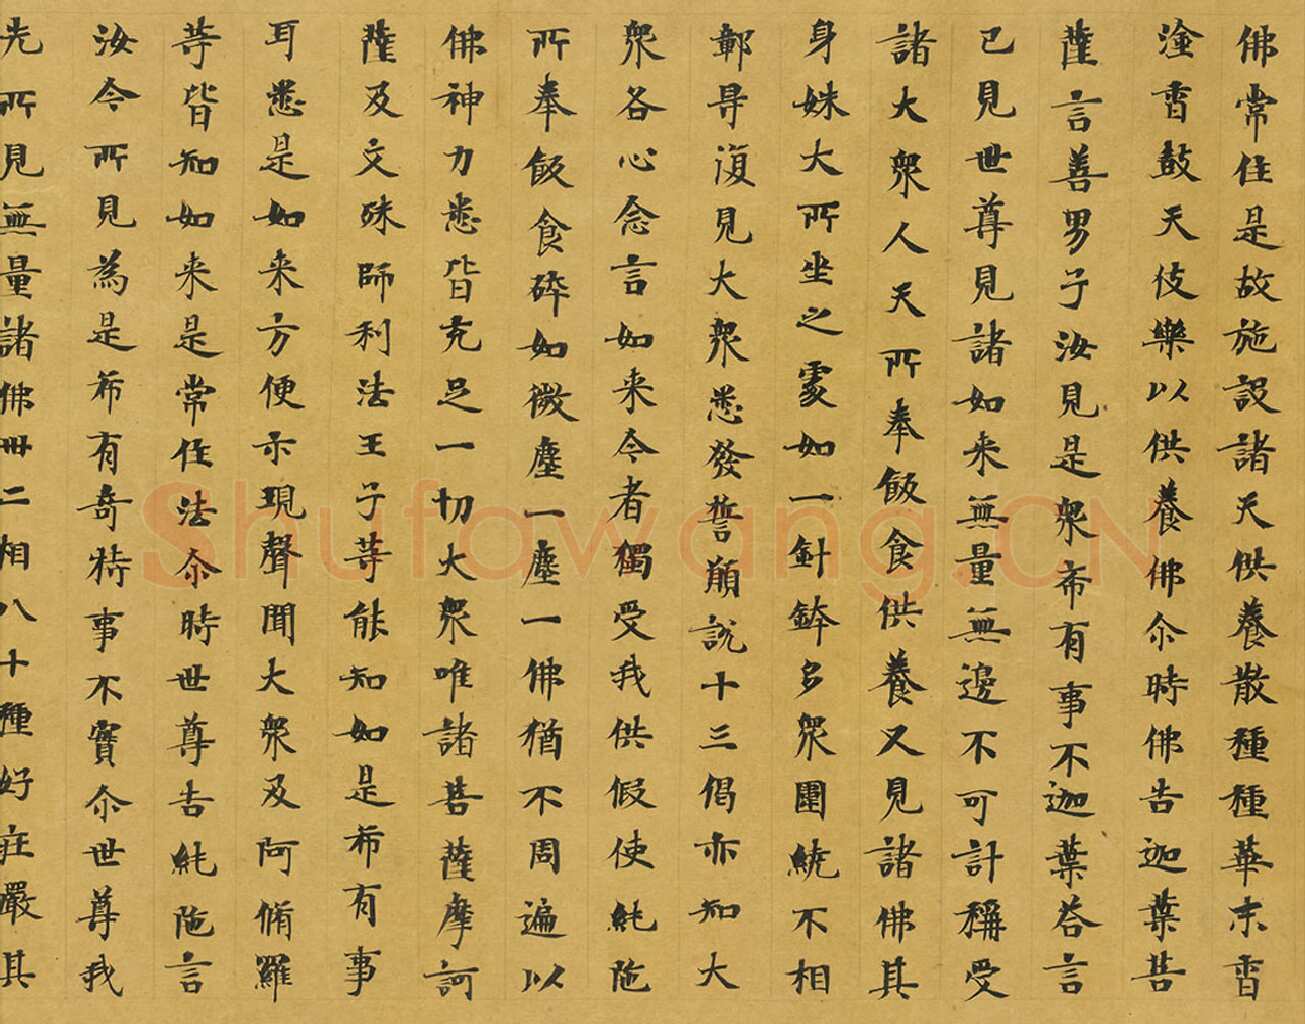 佛常住是故施設諸天供養散種種華末香
塗香鼓天伎樂以供養佛尒時佛告迦葉菩
薩言善男子汝見是衆希有事不迦葉荅言
已見世尊見諸如来無量無邊不可計稱受
諸大衆人天所奉飯食供養又見諸佛其
身姝大所坐之處如一針鋒多衆圍繞不相
鄣㝵復見大衆悉發誓願說十三偈亦知大
衆各心念言如来今者獨受我供假使純陁
所奉飯食碎如微塵一塵一佛猶不周遍以
佛神力悉皆充足一切大衆唯諸菩薩摩訶
薩及文殊師利法王子等能知如是希有事
耳悉是如来方便示現聲聞大衆及阿脩羅
等皆知如来是常住法尒時世尊告純陁言
汝今所見為是希有奇特事不實尒世尊我
先所見無量諸佛卅二相八十種好莊嚴其
Shufawang.CN